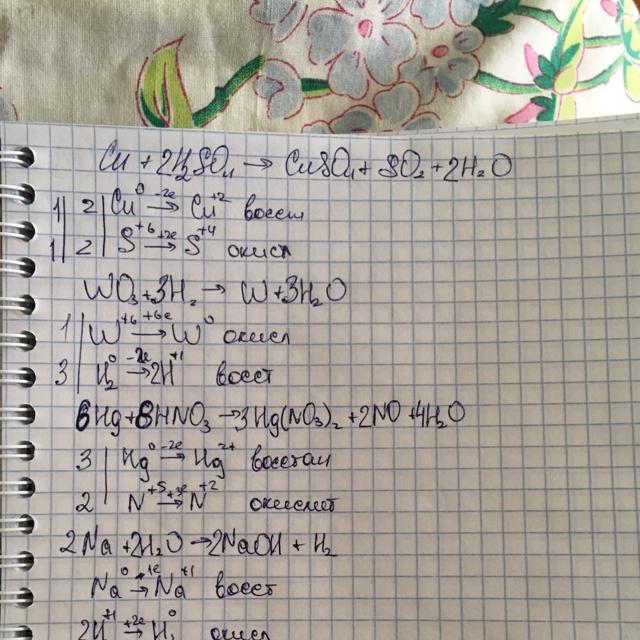 Cu + 2H₂SO₄ → CuSO₄ + SO₂ + 2H₂O
1 | 2 | Cu⁰ -2e→ Cu⁺² восст
1 | 2 | S⁺⁶ +2e→ S⁺⁴ окисл
WO₃ + 3H₂ → W + 3H₂O
1 | W⁺⁶ +6e→ W⁰ окисл
3 | H₂⁰ -2e→ 2H⁺¹ восст
6Hg + 8HNO₃ → 3Hg(NO₃)₂ + 2NO + 4H₂O
3 | Hg⁰ -2e→ Hg²⁺ восстан
2 | N⁺⁵ +3e→ N⁺² окислит
2Na + 2H₂O → 2NaOH + H₂
Na⁰ -1e→ Na⁺¹ восст
2H⁺¹ +2e→ H₂⁰ окисл